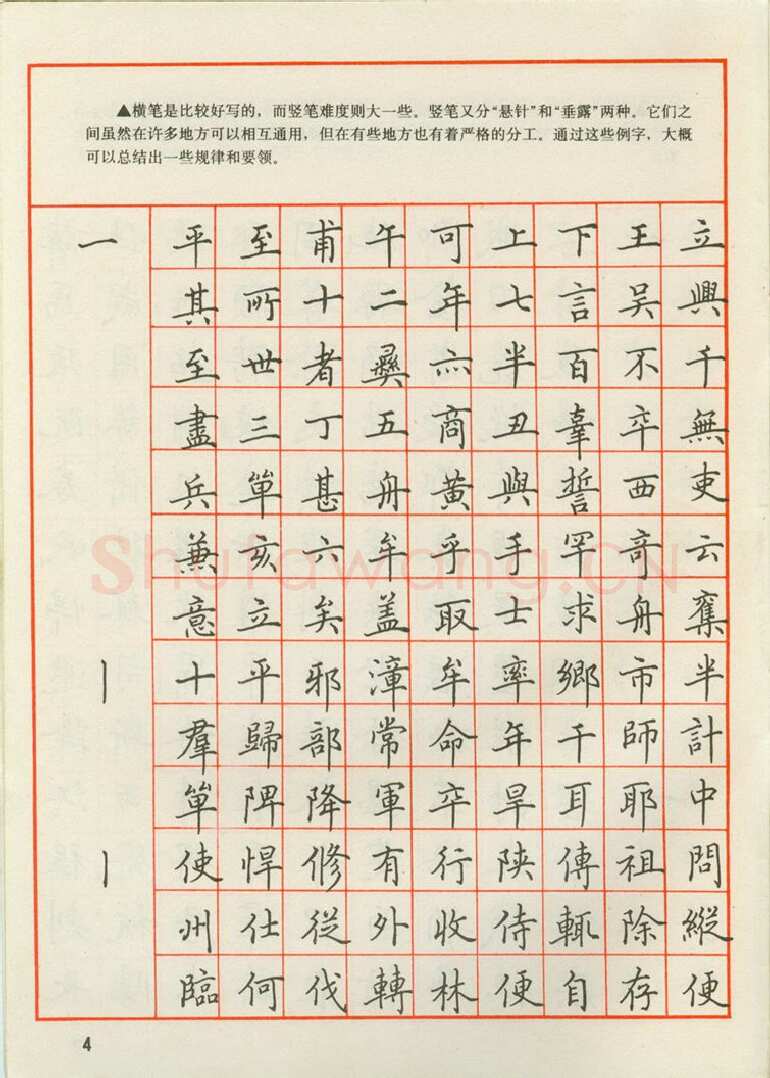 ▲横笔是比较好写的，而竖笔难度则大一些。竖笔又分“悬针”和“垂露”两种。它们之
间虽然在许多地方可以相互通用，但在有些地方也有着严格的分工。通过这些例字，大概
可以总结出一些规律和要领。
一 平至甫午可上下王立
其所十二年七言吴興
至世者彝六半百不千
盡三丁五商丑辜卒無
兵單甚舟黄與誓西吏
兼亥六牟乎手罕奇云
意立矣盖取士求舟奪
丨 十平邪漳牟率鄉市半
羣歸部常命年千師計
單陴降軍卒旱耳耶中
丨 使悍修有行陕傳祖問
州仕從外收侍輒除縱
臨何伐轉林便自存便
Shufawang.CN
4